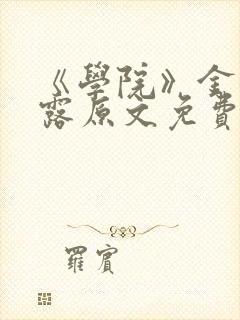 《學院》金
露原文免費
羅賓